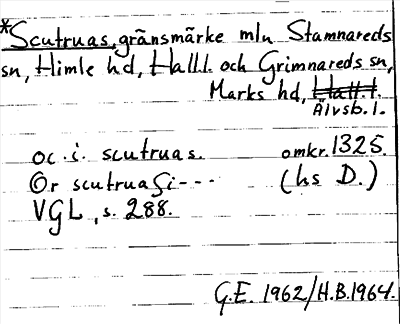 *Scutruas, gränsmärke mln Stamnareds
sn, Himle hd, Halll. och Grimnareds sn,
Marks hd, Hall l.
Älvsb. l.
oc . i . scutruas. omkr. 1325.
Or scutruaſi--- (hs D.)
VGL, s. 288.
G.E. 1962/H.B.1964.